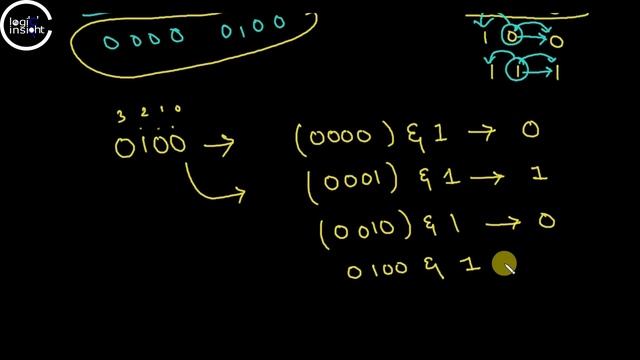 logic insight
0 0 0 0 0 1 0 0
1 0 → 0
1 1 → 1
3 2 1 0
0100 →
(0000) & 1 → 0
(0001) & 1 → 1
(0010) & 1 → 0
0100 & 1